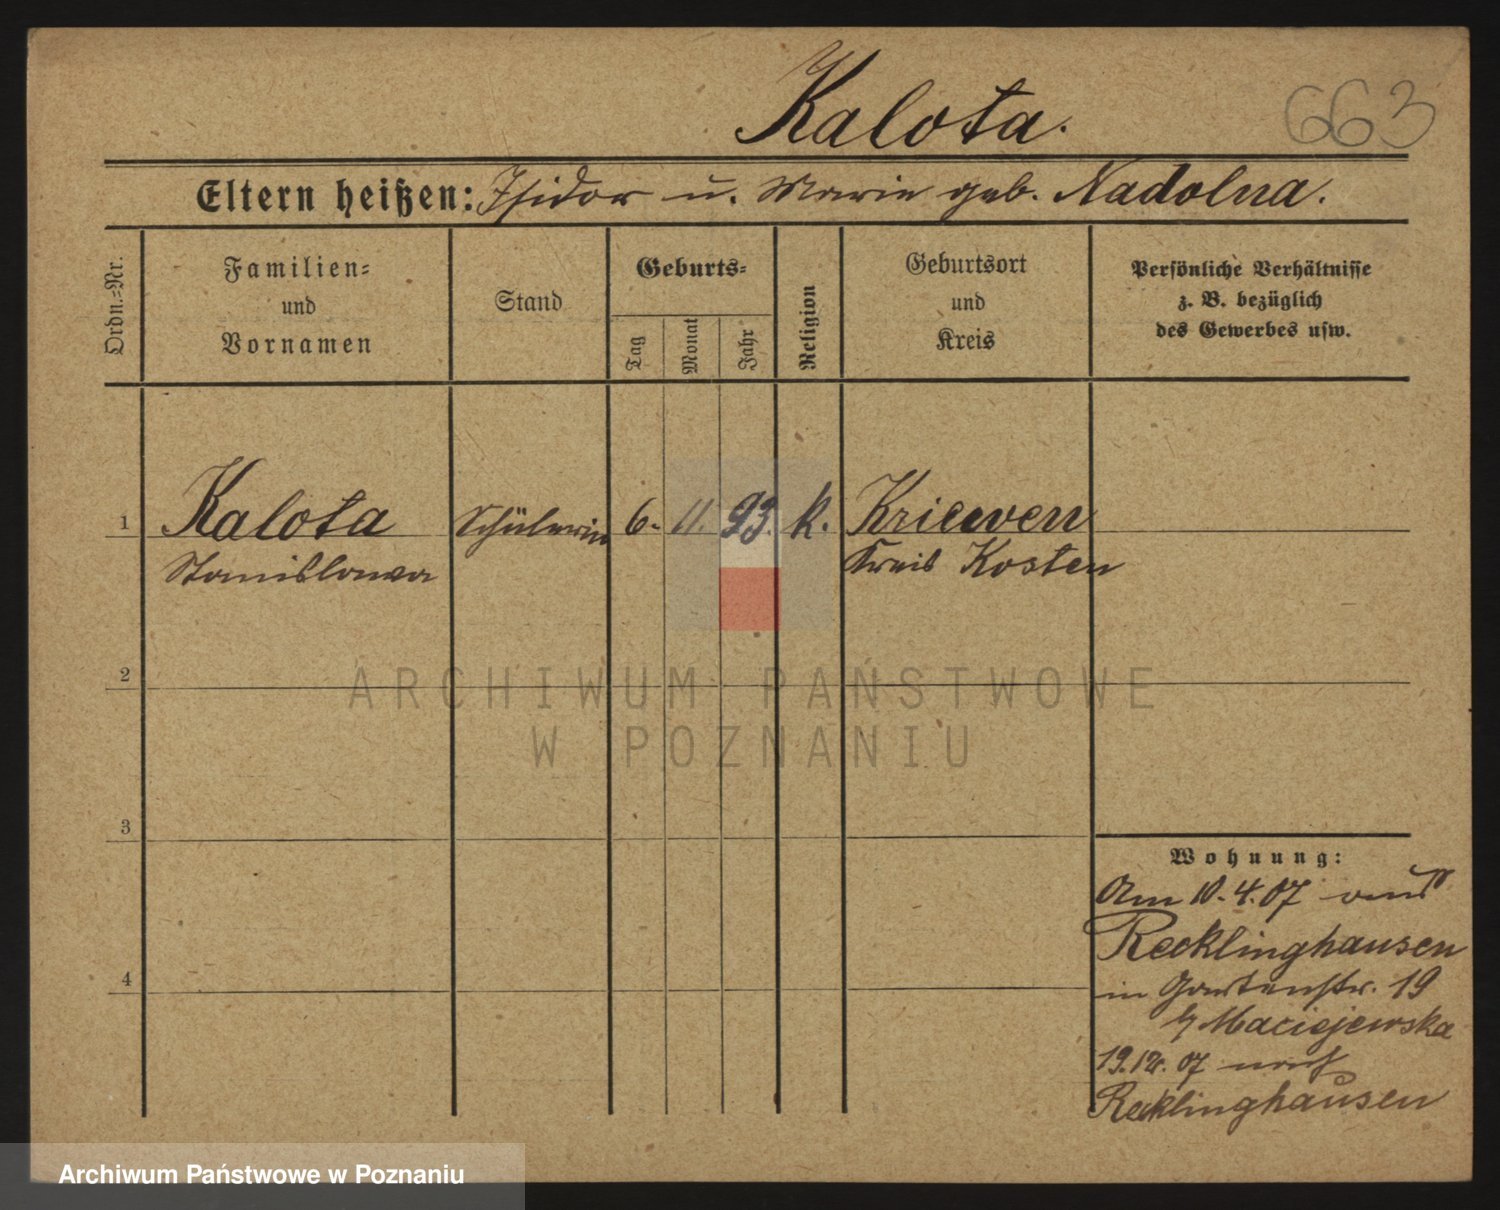 Kalota. 663
Eltern heißen: Isidor u. Marie geb. Nadolna.
Ordn.=Nr.
Familien=
und
Vornamen
Stand
Geburts=
Tag
Monat
Jahr
Religion
Geburtsort
und
Kreis
Persönliche Verhältnisse
z. B. bezüglich
des Gewerbes usw.
1 Kalota Schülerin 6. 11. 93. k. Kriewen
Stanislawa Kreis Kosten
2
3
4
Wohnung:
Am 10.4.07 aus
Recklinghausen
in Gartenstr. 19
b/ Maciejewska
19.12.07 nach
Recklinghausen
ARCHIWUM PAŃSTWOWE
W POZNANIU
Archiwum Państwowe w Poznaniu